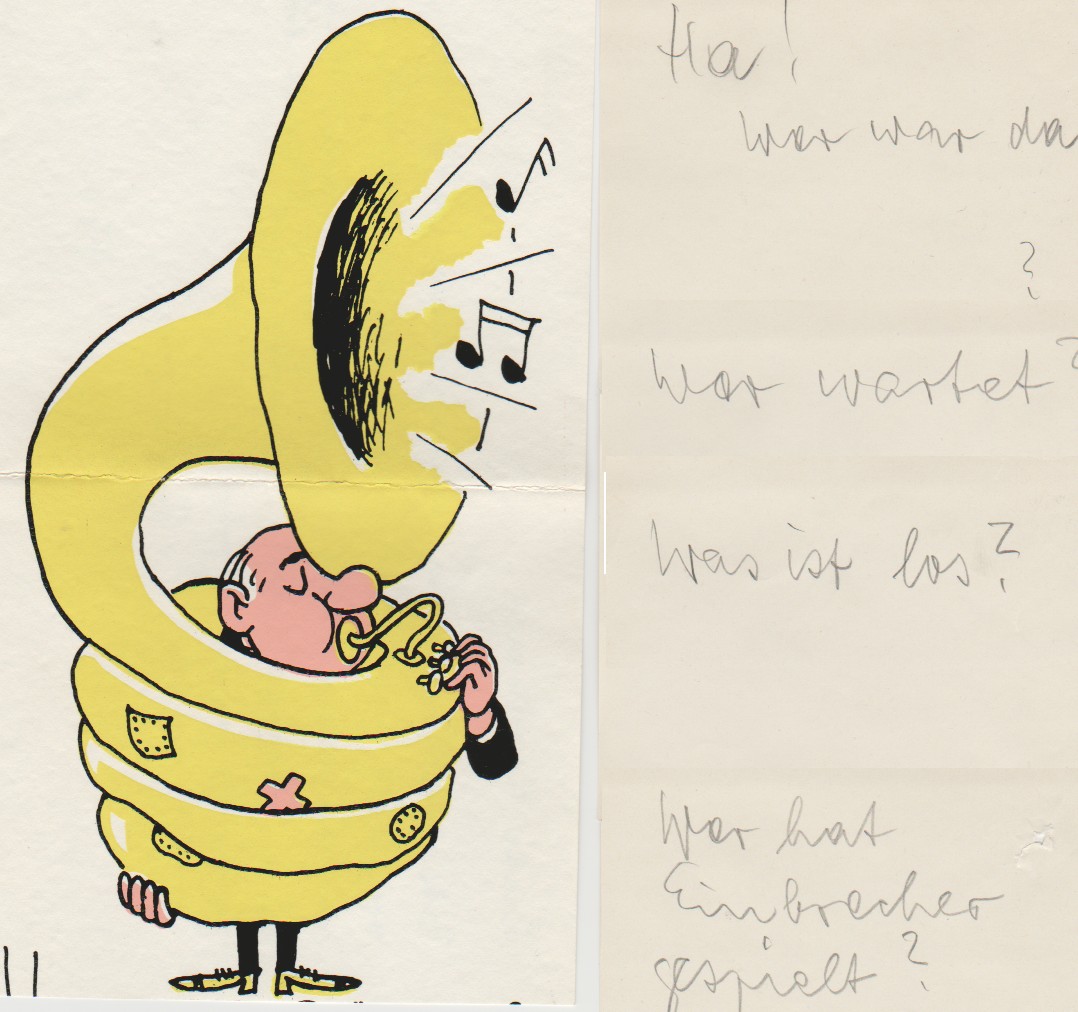 Ha!
Wer war da
?
Wer wartet?
Was ist los?
Wer hat
Einbrecher
gespielt?